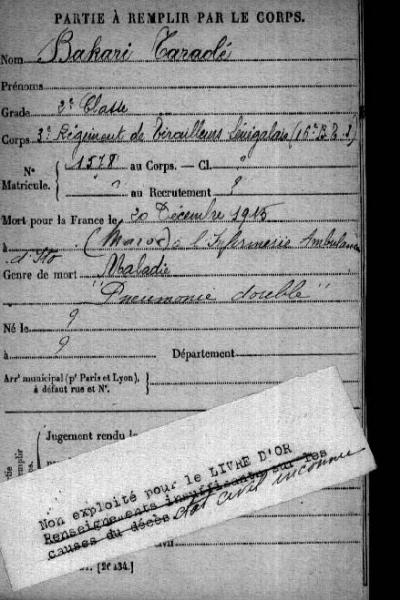 PARTIE À REMPLIR PAR LE CORPS.
Nom Bakari Taraolé
Prénoms
Grade 2e Classe
Corps 3e Régiment de Tirailleurs Sénégalais (16e B.T.S)
N° Matricule. { 1578 au Corps. — Cl. "
" au Recrutement ?
Mort pour la France le 20 Décembre 1915
à d'Ito (Maroc) à l'Infirmerie Ambulance
Genre de mort Maladie
"Pneumonie double"
Né le ?
à ? Département
Arrt municipal (pr Paris et Lyon), à défaut rue et N°. }
Jugement rendu le
Non exploité pour le LIVRE D'OR
Renseignements insuffisants sur les
causes du décès état civil inconnu
[26434.]